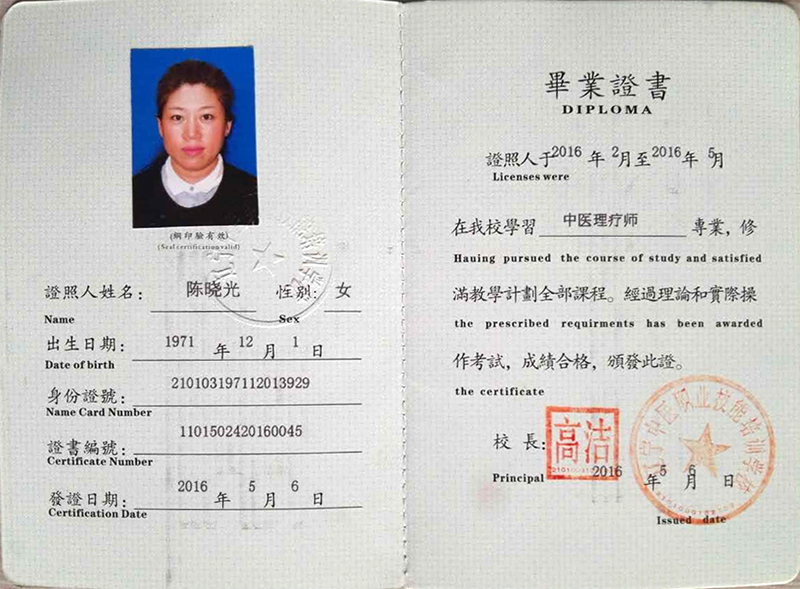 (鋼印驗有效)
(Seal certification valid)
證照人姓名: 陈晓光 性别: 女
Name Sex
出生日期: 1971 年 12 月 1 日
Date of birth
身份證號: 210103197112013929
Name Card Number
證書編號: 1101502420160045
Certificate Number
發證日期: 2016 年 5 月 6 日
Certification Date
畢業證書
DIPLOMA
證照人于2016年2月至2016年5月
Licenses were
在我校學習 中医理疗师 專業，修
Hauing pursued the course of study and satisfied
滿教學計劃全部課程。經過理論和實際操
the prescribed requirments has been awarded
作考試，成績合格，頒發此證。
the certificate
校長: 高洁
Principal 2016 年 5 月 6 日
Issued date
辽宁中医职业技能培训学校